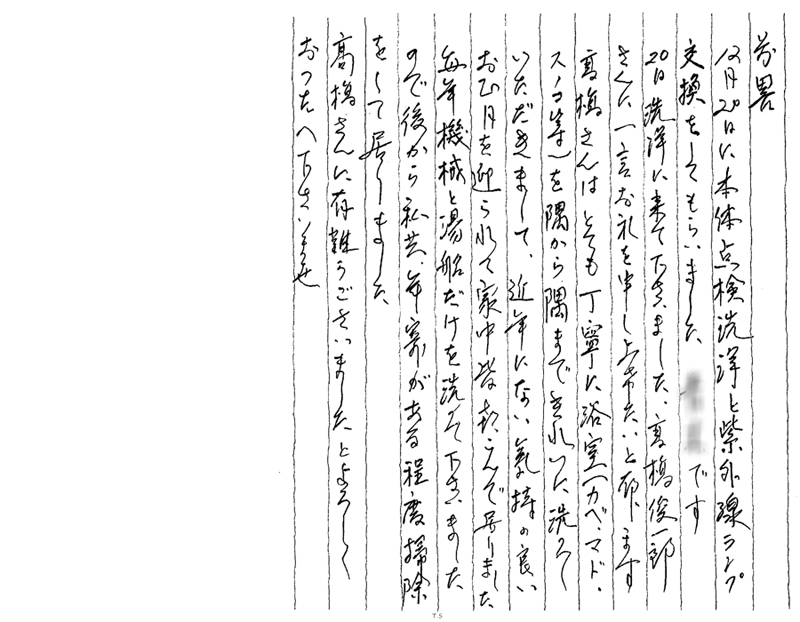 前略
12月20日に本体点検洗浄と紫外線ランプ
交換をしてもらいました、です
20日洗浄に来て下さいました、高橋俊一郎
さんに一言お礼を申し上げたいと思います
高橋さんはとても丁寧に浴室(カベ、マド、
スノコ等)を隅から隅まできれいに洗って
いただきまして、近年にない気持の良い
お正月を迎えられて家中皆喜んで居りました
毎年機械と湯船だけを洗って下さいました
ので後から私共、年寄がある程度掃除
をして居りました
高橋さんに有難うございましたとよろしく
おつたへ下さいませ